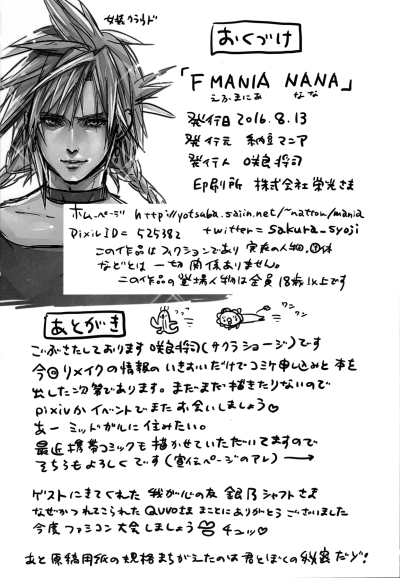 女装クラウド
おくづけ
「F MANIA NANA」
えふまにあ なな
発行日 2016.8.13
発行元 納豆マニア
発行人 咲良将司
印刷所 株式会社栄光さま
ホームページ http://yotsuba.saiin.net/~nattou/mania
pixiv ID= 525382 twitter= sakura_syoji
この作品はフィクションであり 実在の人物、団体
などとは 一切関係ありません。
この作品の登場人物は全員 18歳以上です
あとがき
ワンワン
ごぶさたしております 咲良将司(サクラ ショージ)です
今回リメイクの情報のいきおいだけでコミケ申し込みと本を
出した次第であります。まだまだ描きたりないので
pixivかイベントでまたお会いしましょう♡
あー ミッドガルに住みたい。
最近携帯コミックも描かせていただいてますので
そちらもよろしくです(宣伝ページのアレ)→
ゲストにきてくれた 我が心の友 銀乃シャフトさま
なぜかつれてこられた QUVOさま まことにありがとうございました
今度ファミコン大会しましょう チュッ♡
あと 原稿用紙の規格まちがえたのは君とぼくの秘密だゾ!